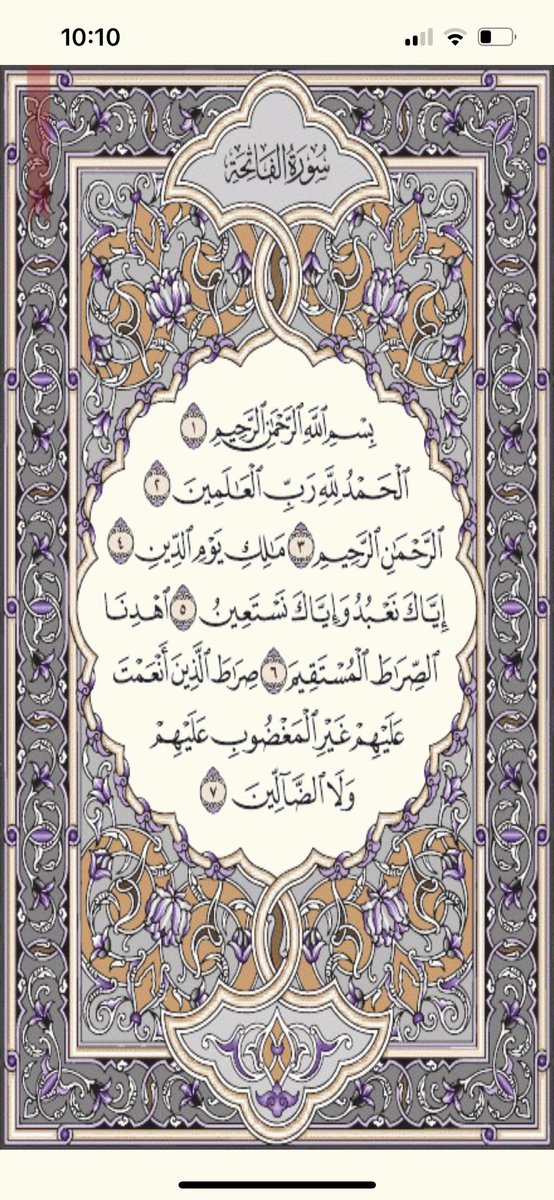 10:10
سُورَةُ الفَاتِحَةِ
بِسْمِ ٱللَّهِ ٱلرَّحْمَٰنِ ٱلرَّحِيمِ ١
ٱلْحَمْدُ لِلَّهِ رَبِّ ٱلْعَٰلَمِينَ ٢
ٱلرَّحْمَٰنِ ٱلرَّحِيمِ ٣ مَٰلِكِ يَوْمِ ٱلدِّينِ ٤
إِيَّاكَ نَعْبُدُ وَإِيَّاكَ نَسْتَعِينُ ٥ ٱهْدِنَا
ٱلصِّرَٰطَ ٱلْمُسْتَقِيمَ ٦ صِرَٰطَ ٱلَّذِينَ أَنْعَمْتَ
عَلَيْهِمْ غَيْرِ ٱلْمَغْضُوبِ عَلَيْهِمْ
وَلَا ٱلضَّآلِّينَ ٧